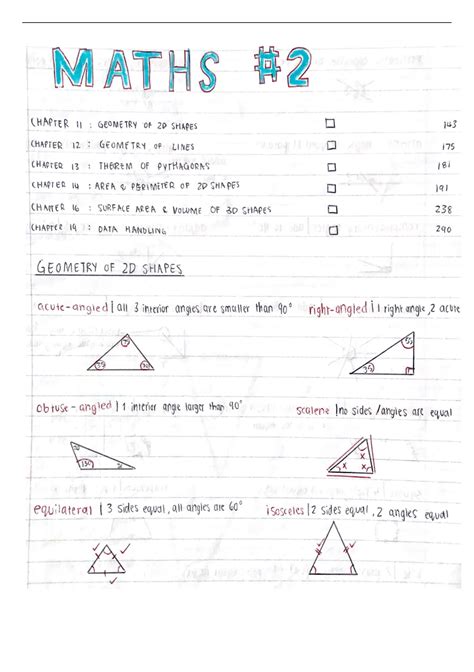 MATHS #2
CHAPTER 11 : GEOMETRY OF 2D SHAPES 143
CHAPTER 12 : GEOMETRY OF LINES 175
CHAPTER 13 : THEOREM OF PYTHAGORAS 181
CHAPTER 14 : AREA & PERIMETER OF 2D SHAPES 191
CHAPTER 16 : SURFACE AREA & VOLUME OF 3D SHAPES 238
CHAPTER 19 : DATA HANDLING 290
GEOMETRY OF 2D SHAPES
acute-angled | all 3 interior angles are smaller than 90° right-angled | 1 right angle, 2 acute
obtuse-angled | 1 interior angle larger than 90° scalene | no sides/angles are equal
x
x x
equilateral | 3 sides equal, all angles are 60° isosceles | 2 sides equal, 2 angles equal